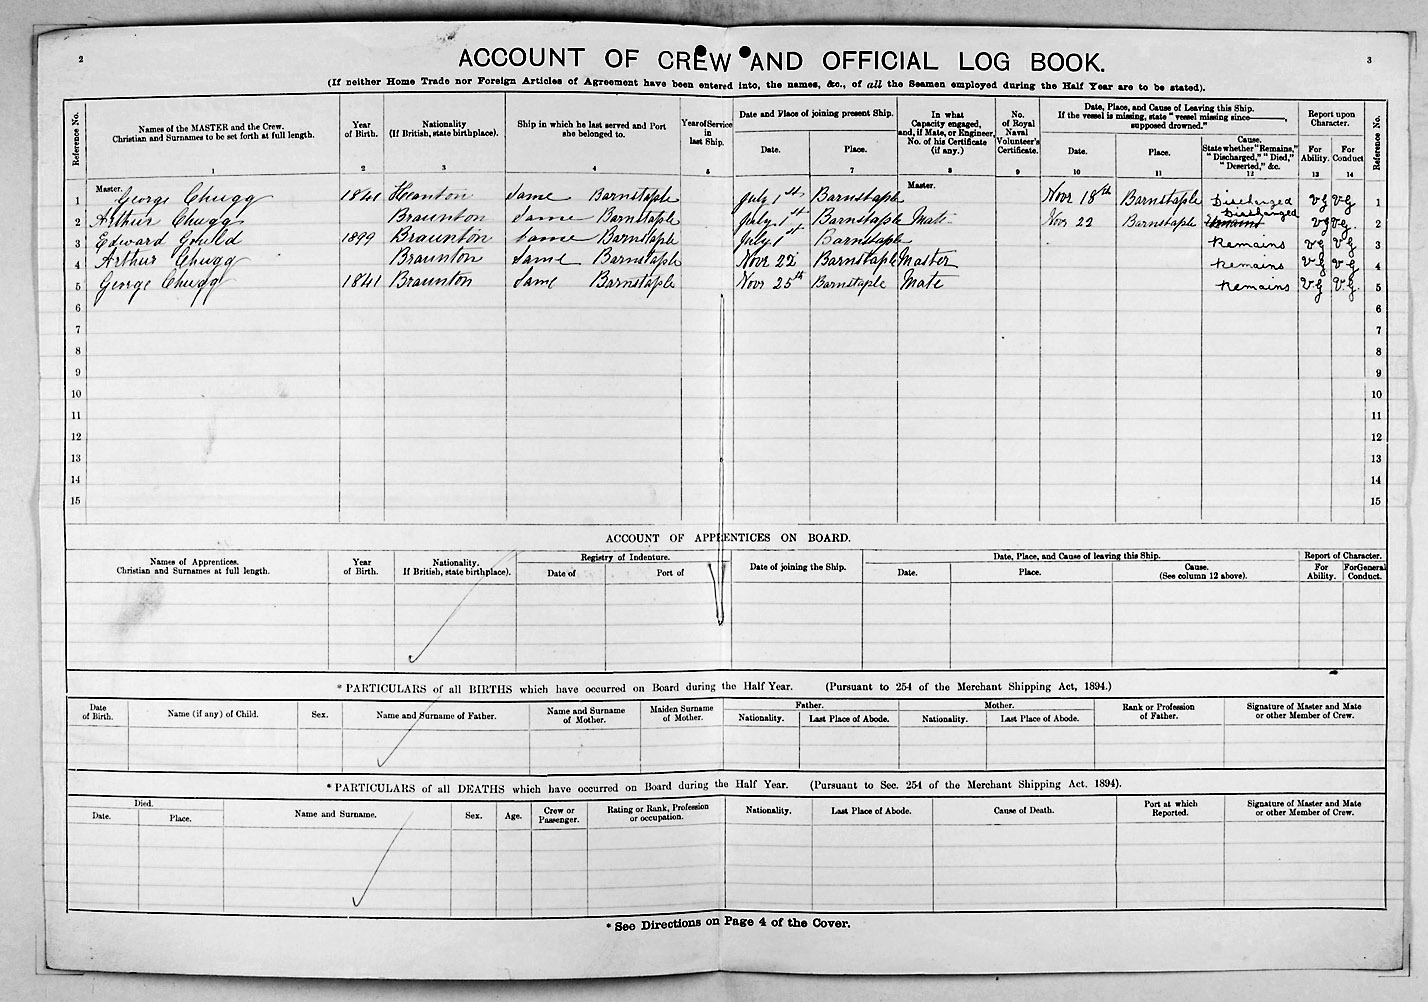 2
3
ACCOUNT OF CREW AND OFFICIAL LOG BOOK.
(If neither Home Trade nor Foreign Articles of Agreement have been entered into, the names, &c., of all the Seamen employed during the Half Year are to be stated).
Reference No. | Names of the MASTER and the Crew. Christian and Surnames to be set forth at full length. | Year of Birth. | Nationality (If British, state birthplace). | Ship in which he last served and Port she belonged to. | Year of Service in last Ship. | Date and Place of joining present Ship. Date. Place. | In what Capacity engaged, and, if Mate, or Engineer, No. of his Certificate (if any.) | No. of Royal Naval Volunteer's Certificate. | Date, Place, and Cause of Leaving this Ship. If the vessel is missing, state "vessel missing since———, supposed drowned." Date. Place. Cause. State whether "Remains," "Discharged," "Died," "Deserted," &c. | Report upon Character. For Ability. For Conduct | Reference No.
1 2 3 4 5 6 7 8 9 10 11 12 13 14
Master. Master.
1 George Chugg 1841 Heanton Same Barnstaple July 1st Barnstaple Novr 18th Barnstaple Discharged VG VG 1
2 Arthur Chugg Braunton Same Barnstaple July 1st Barnstaple Mate Nov 22 Barnstaple Discharged Remains VG VG. 2
3 Edward Gould 1899 Braunton Same Barnstaple July 1st Barnstaple Remains VG VG 3
4 Arthur Chugg Braunton Same Barnstaple Novr 22 Barnstaple Master Remains VG VG 4
5 George Chugg 1841 Braunton Same Barnstaple Novr 25th Barnstaple Mate Remains V.G V.G. 5
6 6
7 7
8 8
9 9
10 10
11 11
12 12
13 13
14 14
15 15
ACCOUNT OF APPRENTICES ON BOARD.
Names of Apprentices. Christian and Surnames at full length. | Year of Birth. | Nationality. If British, state birthplace). | Registry of Indenture. Date of Port of | Date of joining the Ship. | Date, Place, and Cause of leaving this Ship. Date. Place. Cause. (See column 12 above). | Report of Character. For Ability. For General Conduct.
* PARTICULARS of all BIRTHS which have occurred on Board during the Half Year. (Pursuant to 254 of the Merchant Shipping Act, 1894.)
Date of Birth. | Name (if any) of Child. | Sex. | Name and Surname of Father. | Name and Surname of Mother. | Maiden Surname of Mother. | Father. Nationality. Last Place of Abode. | Mother. Nationality. Last Place of Abode. | Rank or Profession of Father. | Signature of Master and Mate or other Member of Crew.
* PARTICULARS of all DEATHS which have occurred on Board during the Half Year. (Pursuant to Sec. 254 of the Merchant Shipping Act, 1894).
Died. Date. Place. | Name and Surname. | Sex. | Age. | Crew or Passenger. | Rating or Rank, Profession or occupation. | Nationality. | Last Place of Abode. | Cause of Death. | Port at which Reported. | Signature of Master and Mate or other Member of Crew.
* See Directions on Page 4 of the Cover.